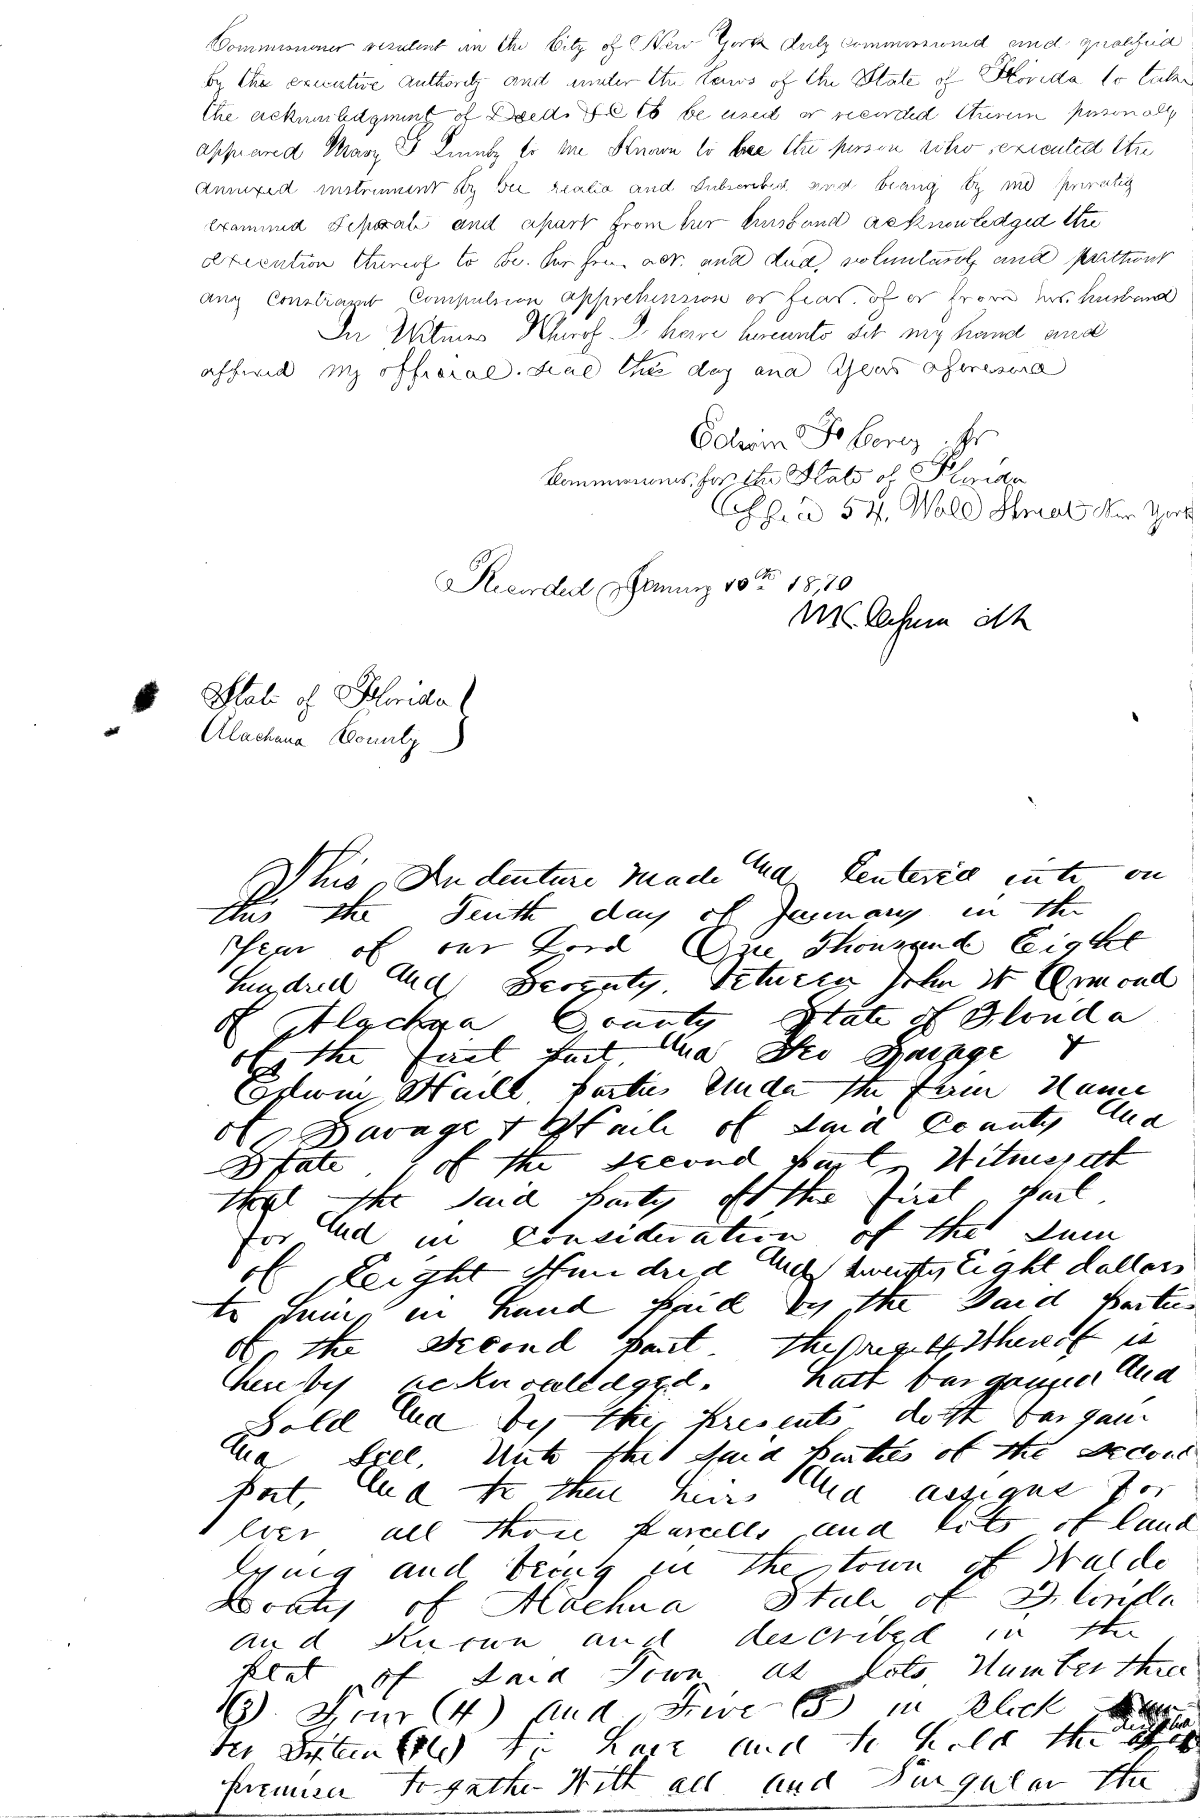 Commissioner resident in the City of New York duly commissioned and qualified
by the executive authority and under the Laws of the State of Florida to take
the acknowledgment of Deeds &C to be used or recorded therein personally
appeared Mary to me Known to be the person who executed the
annexed instrument by and Subscribed and being by me privately
examined Separate and apart from her husband acknowledged the
execution thereof to be her free act and deed, voluntarily and without
any Constraint Compulsion apprehension or fear of or from her husband
In Witness Whereof I have hereunto set my hand and
affixed my official seal the day and Year aforesaid
Edwin F Corey Jr
Commissioner for the State of Florida
Office 54, Wall Street New York
Recorded January 10th 1870
State of Florida
Alachua County
This Indenture Made and Entered into on
this the Tenth day of January in the
Year of our Lord One Thousand Eight
hundred and Seventy, between John W Ormond
of Alachua County State of Florida
of the first part, and Geo Savage &
Edwin Haile, parties Under the firm Name
of Savage & Haile of said County and
State, of the second part, Witnesseth
that the said party of the first part,
for and in consideration of the sum
of Eight Hundred and twenty Eight dollars
to him in hand paid by the said parties
of the second part. the receipt Whereof is
hereby acknowledged. hath bargained and
Sold and by the presents doth bargain
and sell, Unto the said parties of the second
part, and to their heirs and assigns for
ever all those parcells and lots of land
lying and being in the town of Waldo
County of Alachua State of Florida
and Known and described in the
plat of said Town as lots Number three
(3) Four (4) and Five (5) in Block Num-
ber Sixteen (16) to have and to hold the
premises together With all and Singular the